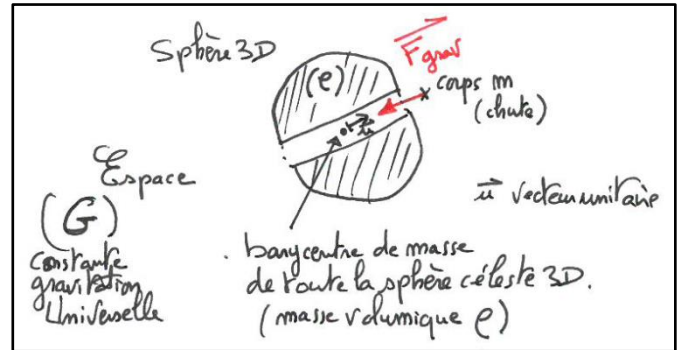 Sphère 3D
F grav
(ρ)
corps m
(chute)
u
Espace
(G)
constante
gravitation
Universelle
u vecteur unitaire
. barycentre de masse
de toute la sphère céleste 3D.
(masse volumique ρ)